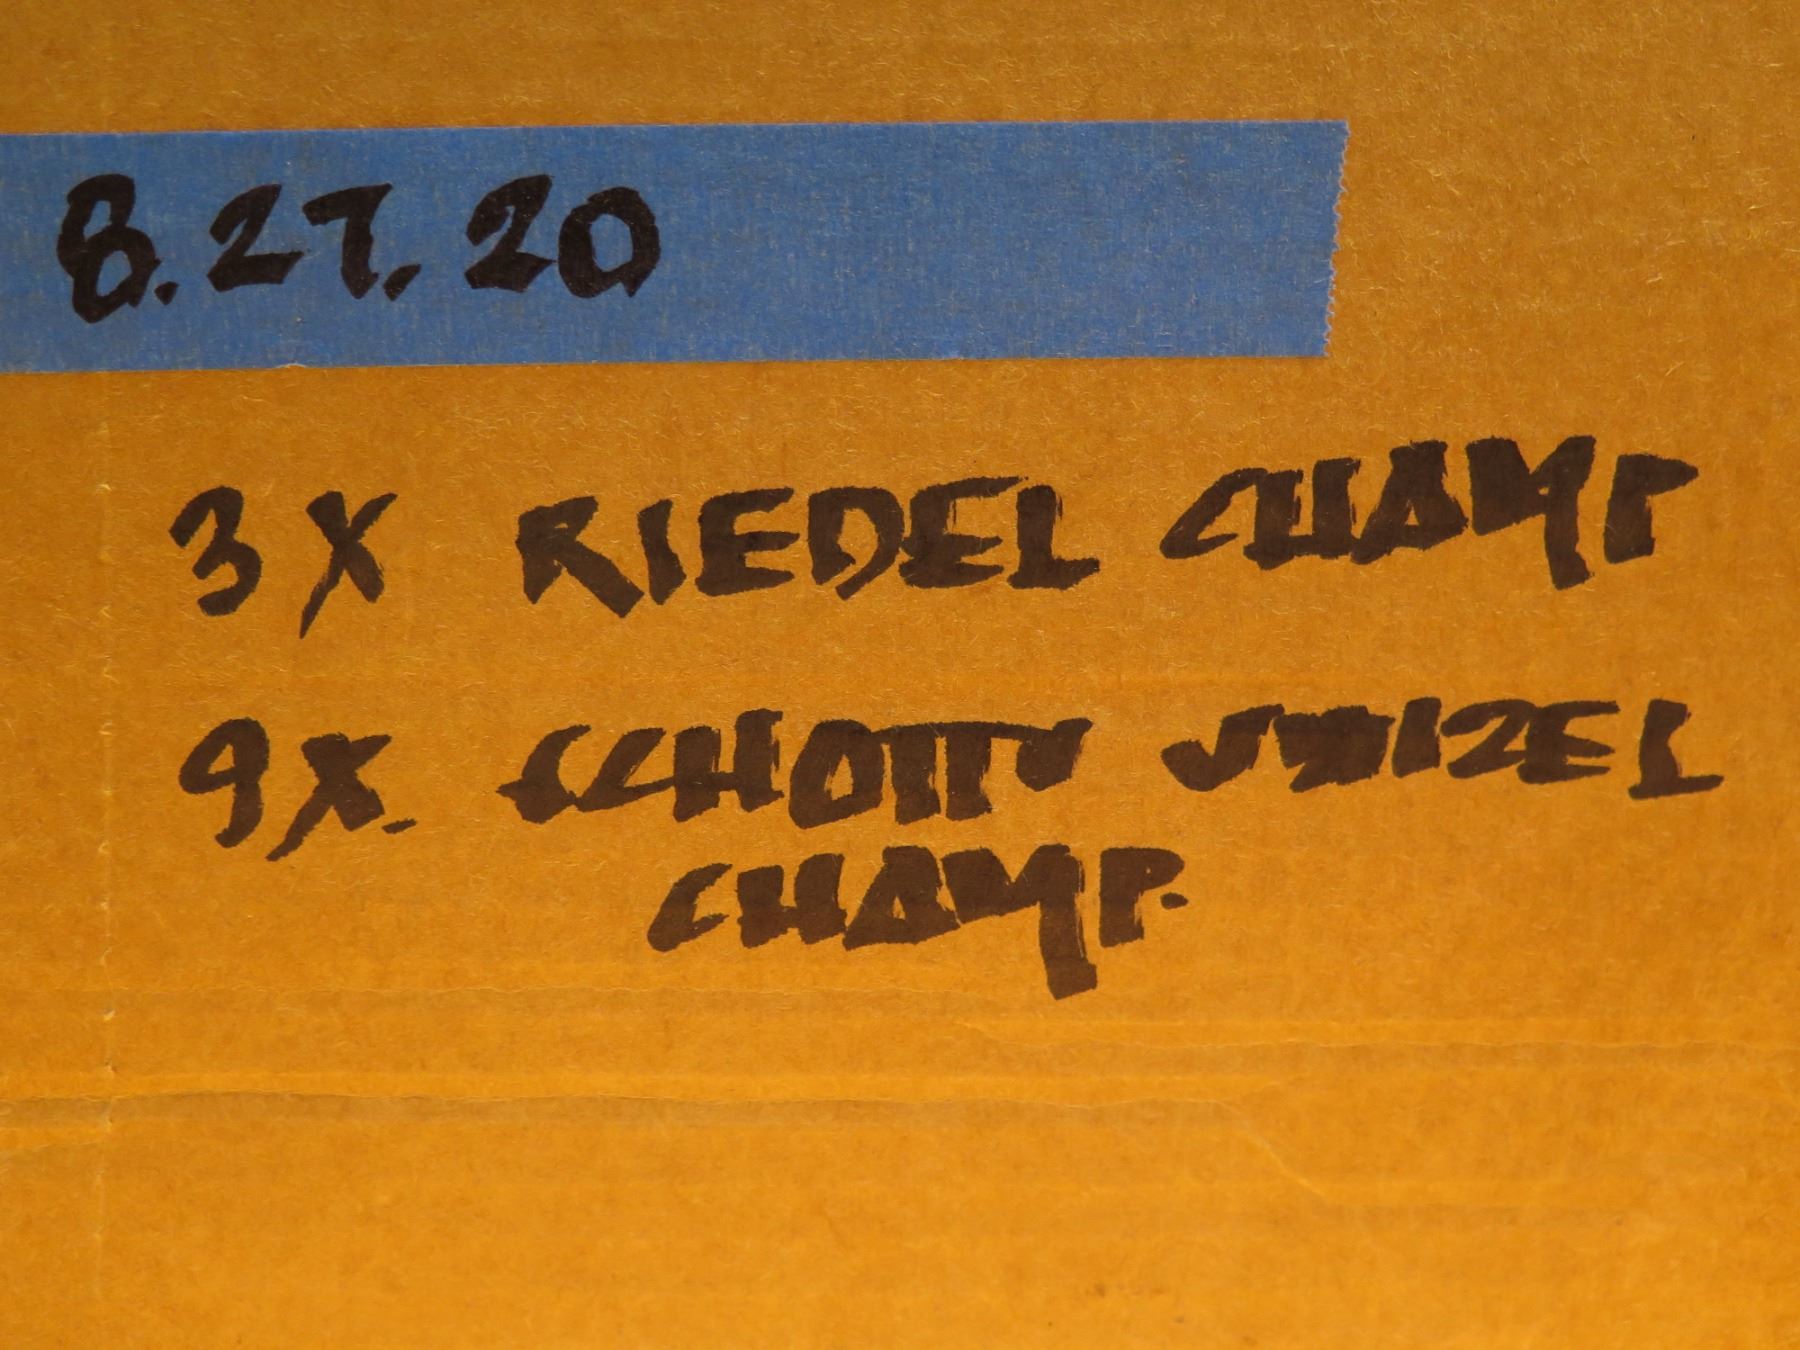 8.27.20
3X RIEDEL CHAMP
9X. SCHOTT
CHAMP.